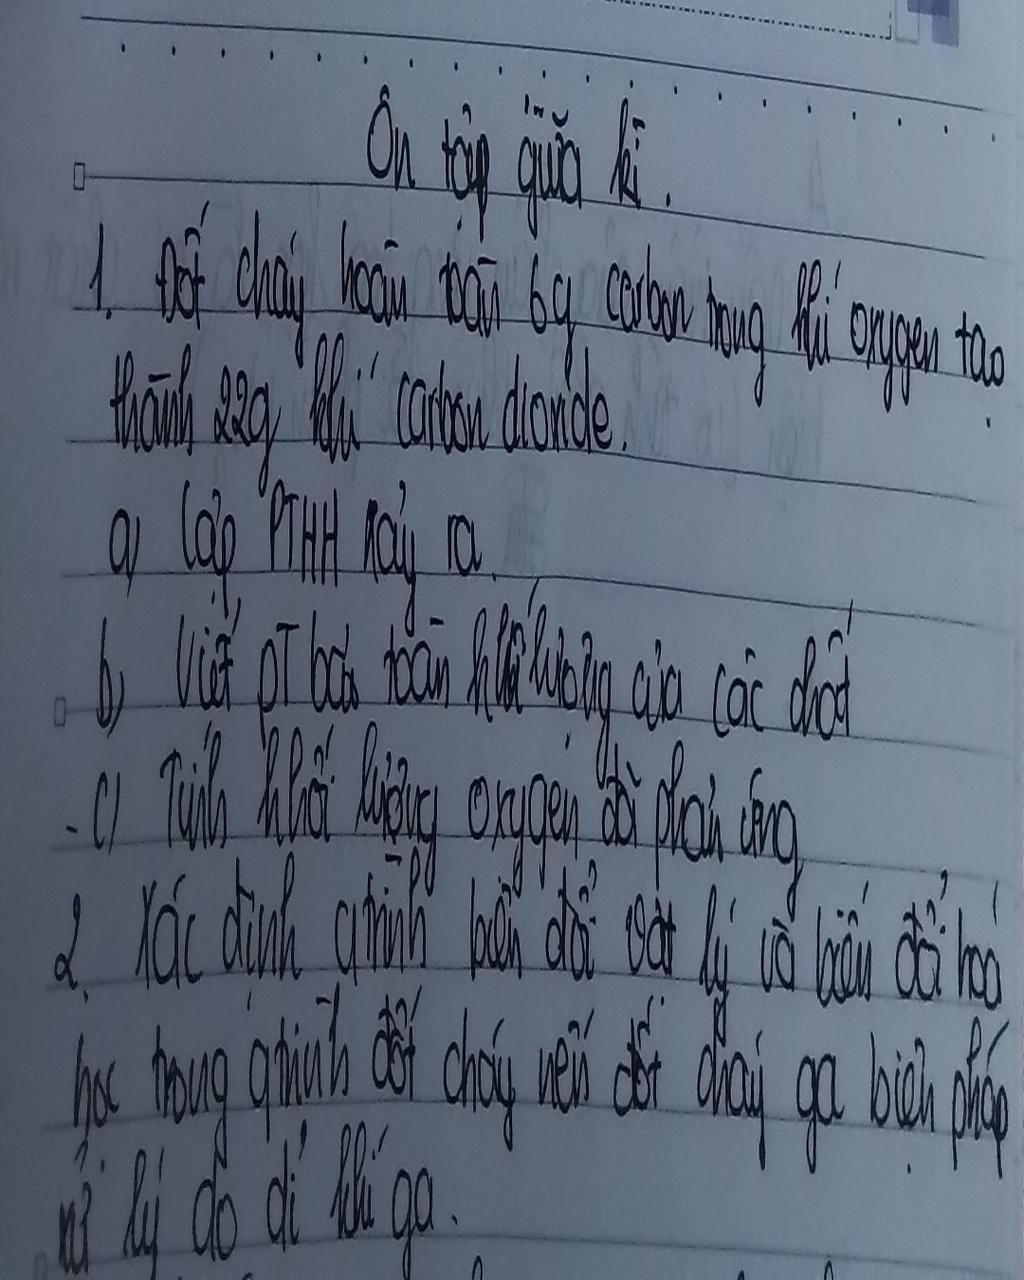 Ôn tập giữa kì.
1. Đốt cháy hoàn toàn 6g carbon trong khí oxygen tạo
thành 22g khí carbon dioxide.
a) Lập PTHH xảy ra.
b) Viết PT bảo toàn khối lượng của các chất
c) Tính khối lượng oxygen đã phản ứng
2. Xác định qtrình biến đổi vật lý và biến đổi hoá
học trong qtrình đốt cháy nến đốt cháy ga biện pháp
xử lý dò dỉ khí ga.